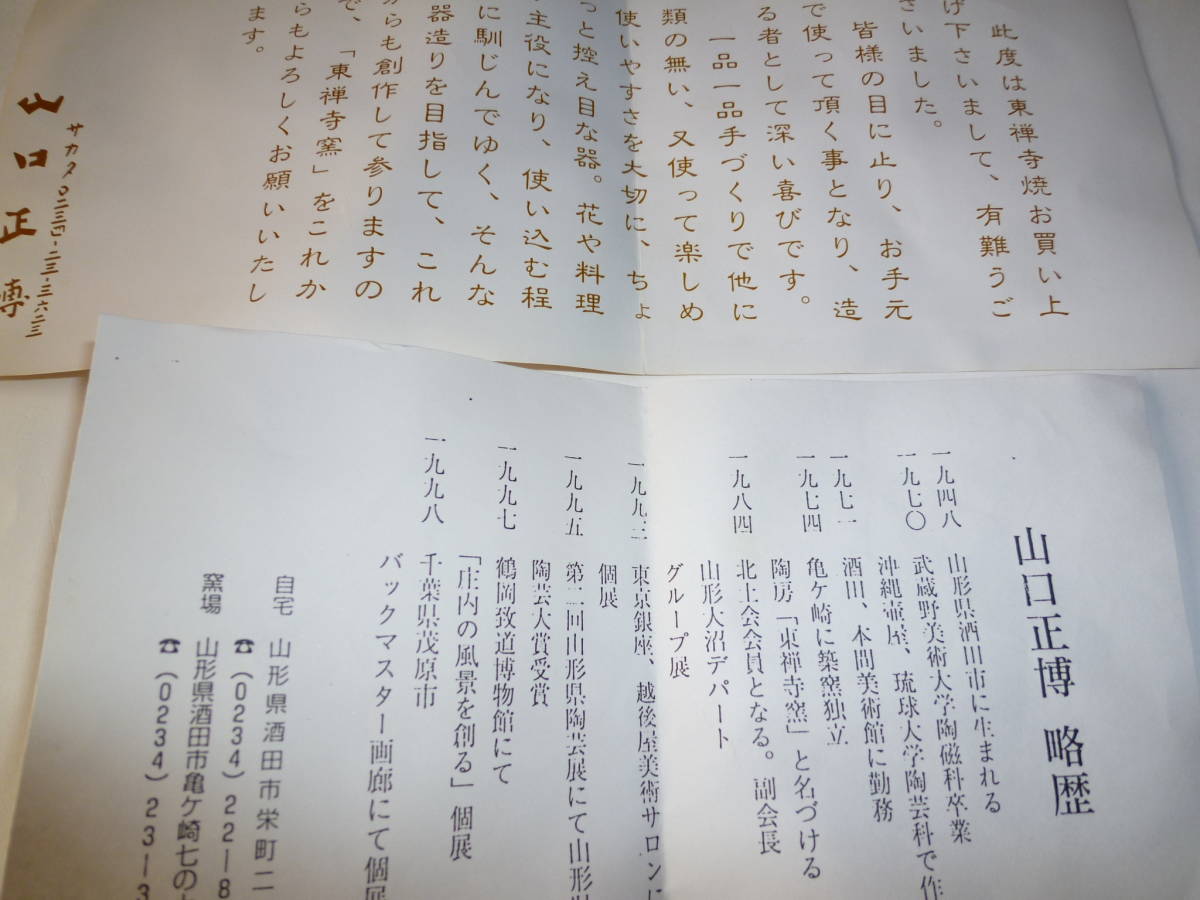 此度は東禅寺焼お買い上
げ下さいまして、有難うご
さいました。
皆様の目に止り、お手元
で使って頂く事となり、造
る者として深い喜びです。
一品一品手づくりで他に
類の無い、又使って楽しめ
使いやすさを大切に、ちょ
っと控え目な器。花や料理
主役になり、使い込む程
に馴じんでゆく、そんな
器造りを目指して、これ
からも創作して参りますの
で、「東禅寺窯」をこれか
らもよろしくお願いいたし
ます。
サカタ〇二三四-二三-三六二三
山口正博
山口正博 略歴
一九四八 山形県酒田市に生まれる
一九七〇 武蔵野美術大学陶磁科卒業
沖縄壷屋、琉球大学陶芸科で作
一九七一 酒田、本間美術館に勤務
一九七四 亀ケ崎に築窯独立
陶房「東禅寺窯」と名づける
一九八四 北土会会員となる。副会長
山形大沼デパート
グループ展
一九九三 東京銀座、越後屋美術サロンに
個展
一九九五 第二回山形県陶芸展にて山形県
陶芸大賞受賞
一九九七 鶴岡致道博物館にて
「庄内の風景を創る」個展
一九九八 千葉県茂原市
バックマスター画廊にて個展
自宅 山形県酒田市栄町二
☎(0234)22-8
窯場 山形県酒田市亀ケ崎七の
☎(0234)23-3